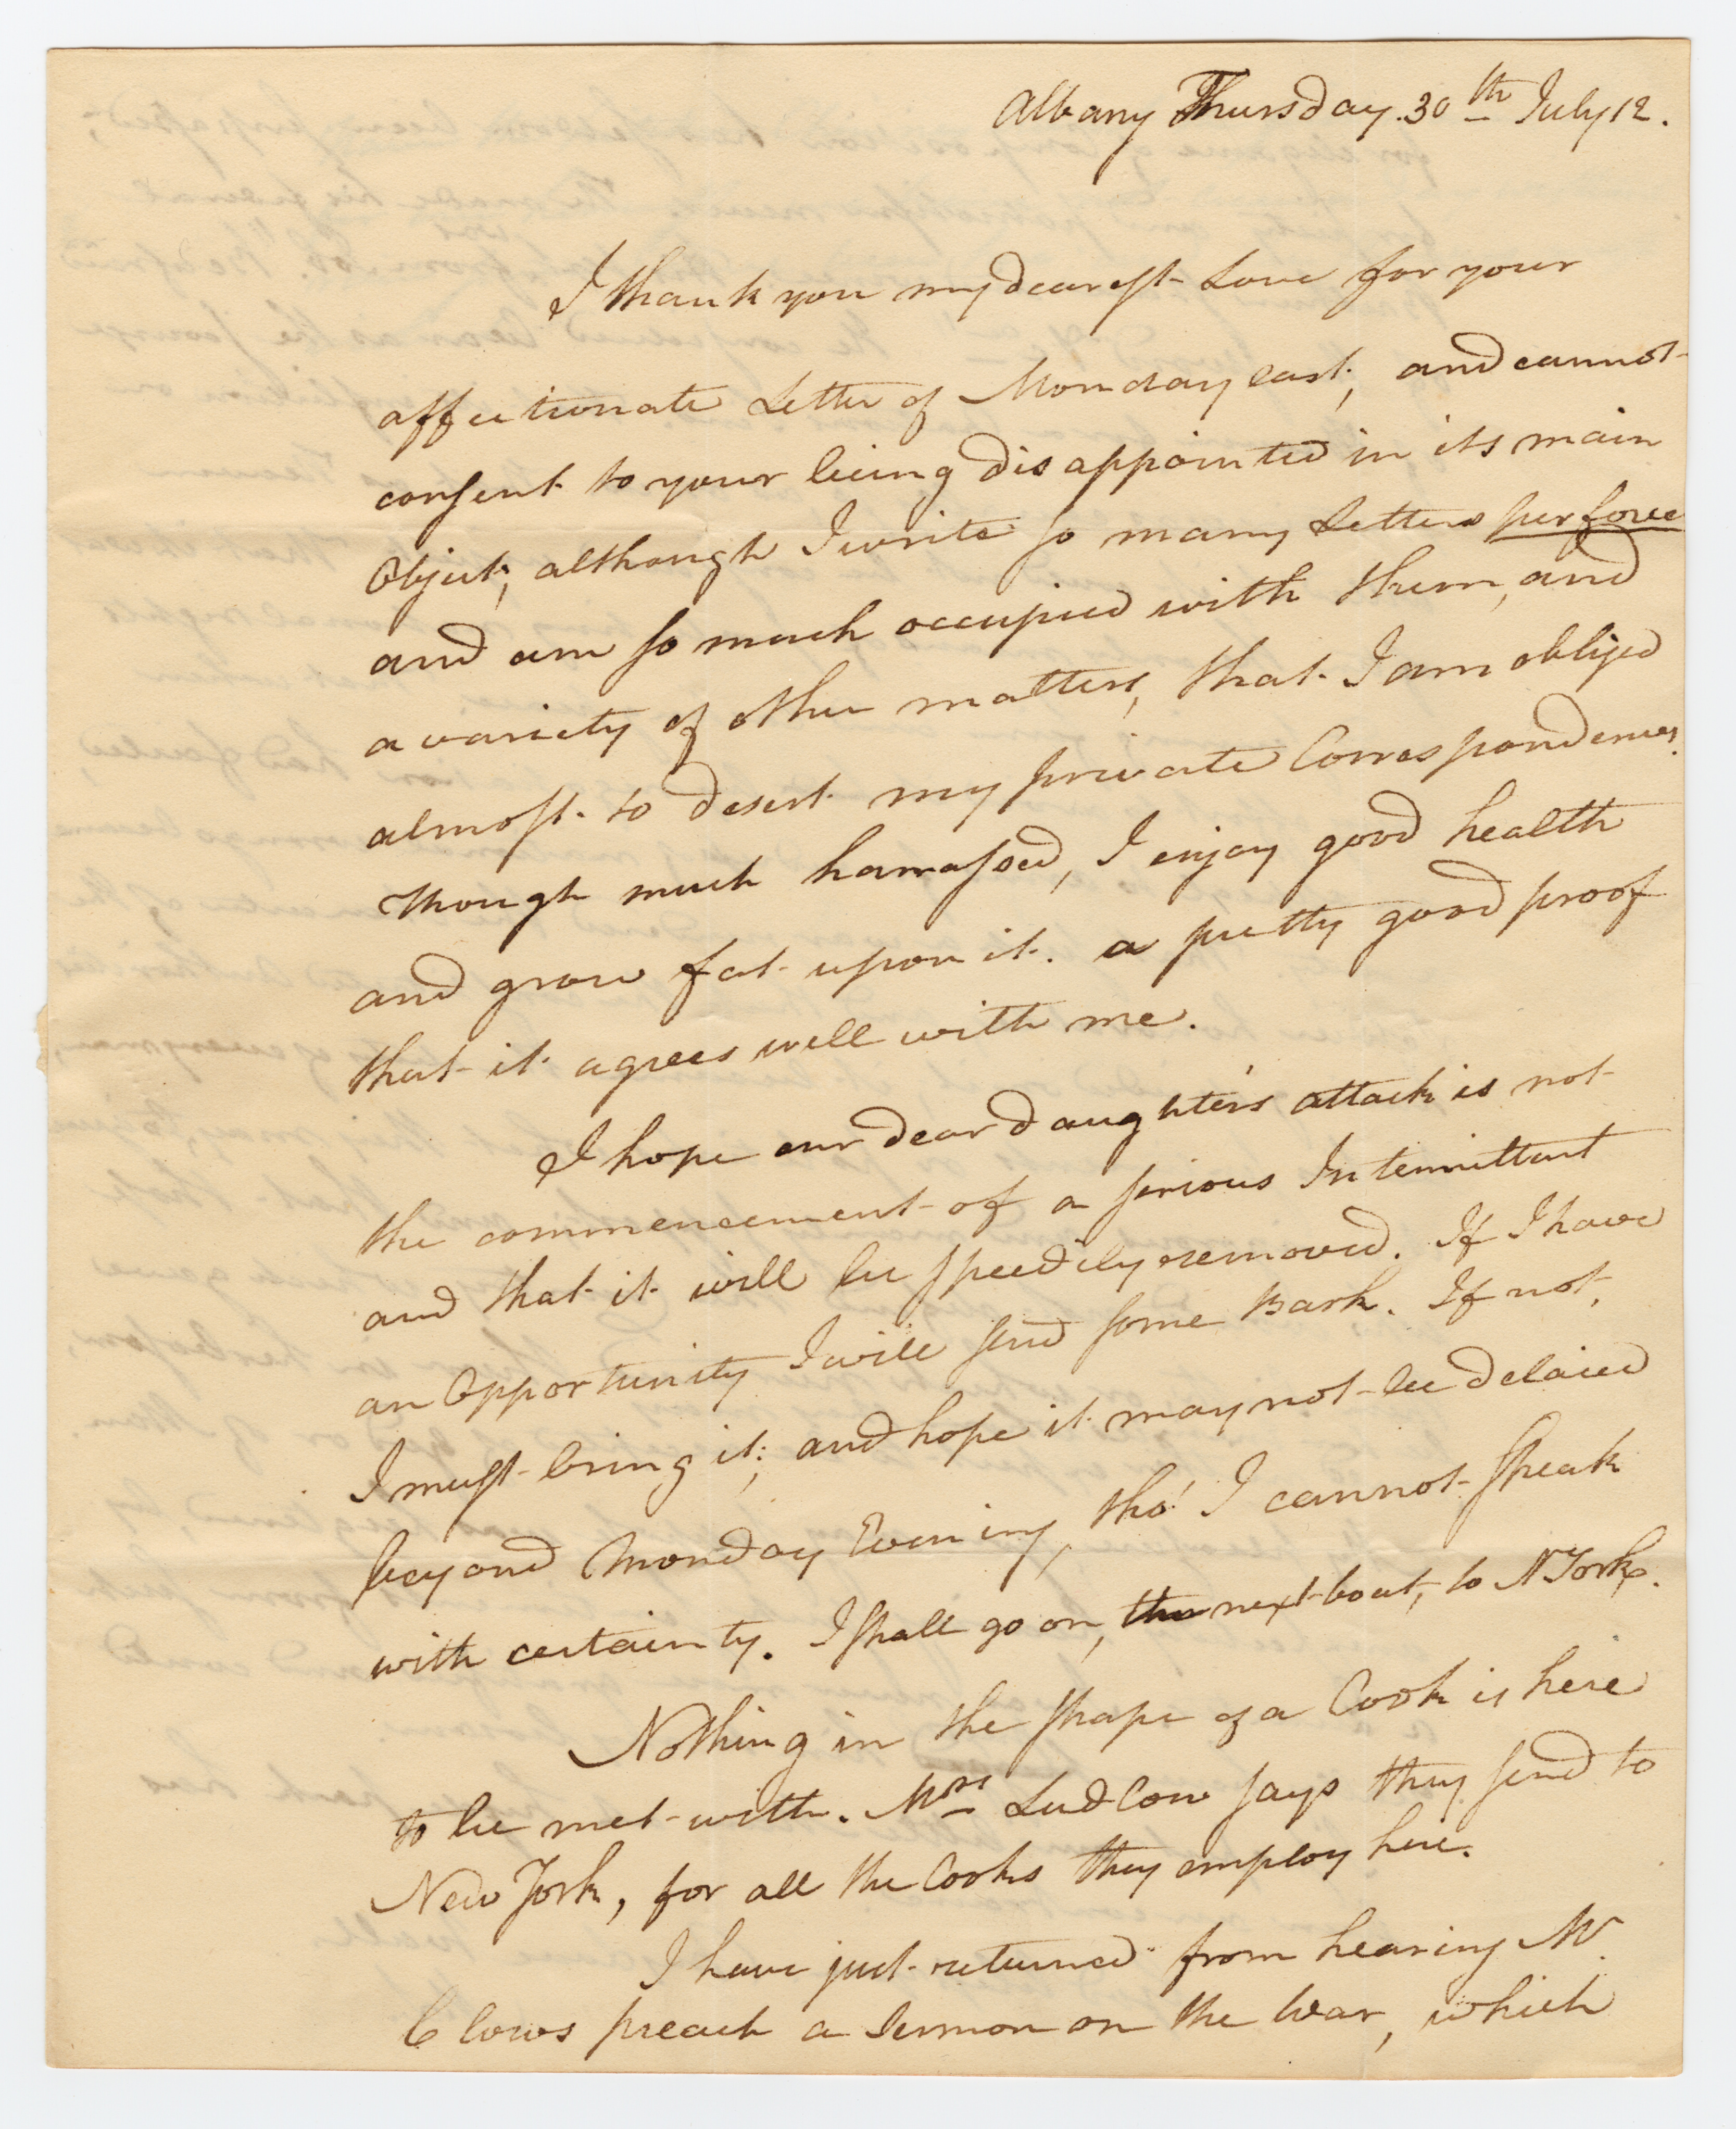 Albany Thursday. 30th July 12.
I thank you my dearest Love for your
affectionate Letter of Monday last, and cannot
consent to your being disappointed in its main
Object, although I write so many Letters perforce
and am so much occupied with them, and
a variety of other matters, that I am obliged
almost to desert my private Correspondences.
Though much harrassed, I enjoy good health
and grow fat upon it. a pretty good proof
that it agrees well with me.
I hope our dear daughter's attack is not
the commencement of a serious Intermittent
and that it will be speedily removed. If I have
an Opportunity I will send some Bark. If not,
I must bring it; and hope it may not be delaied
beyond Monday Evening, tho' I cannot speak
with certainty. I shall go on, the next boat, to N York.
Nothing in the shape of a Cook is here
to be met with. Mrs Ludlow says they send to
New York, for all the Cooks they employ here.
I have just returned from hearing Mr.
Clowes preach a Sermon on the War, which